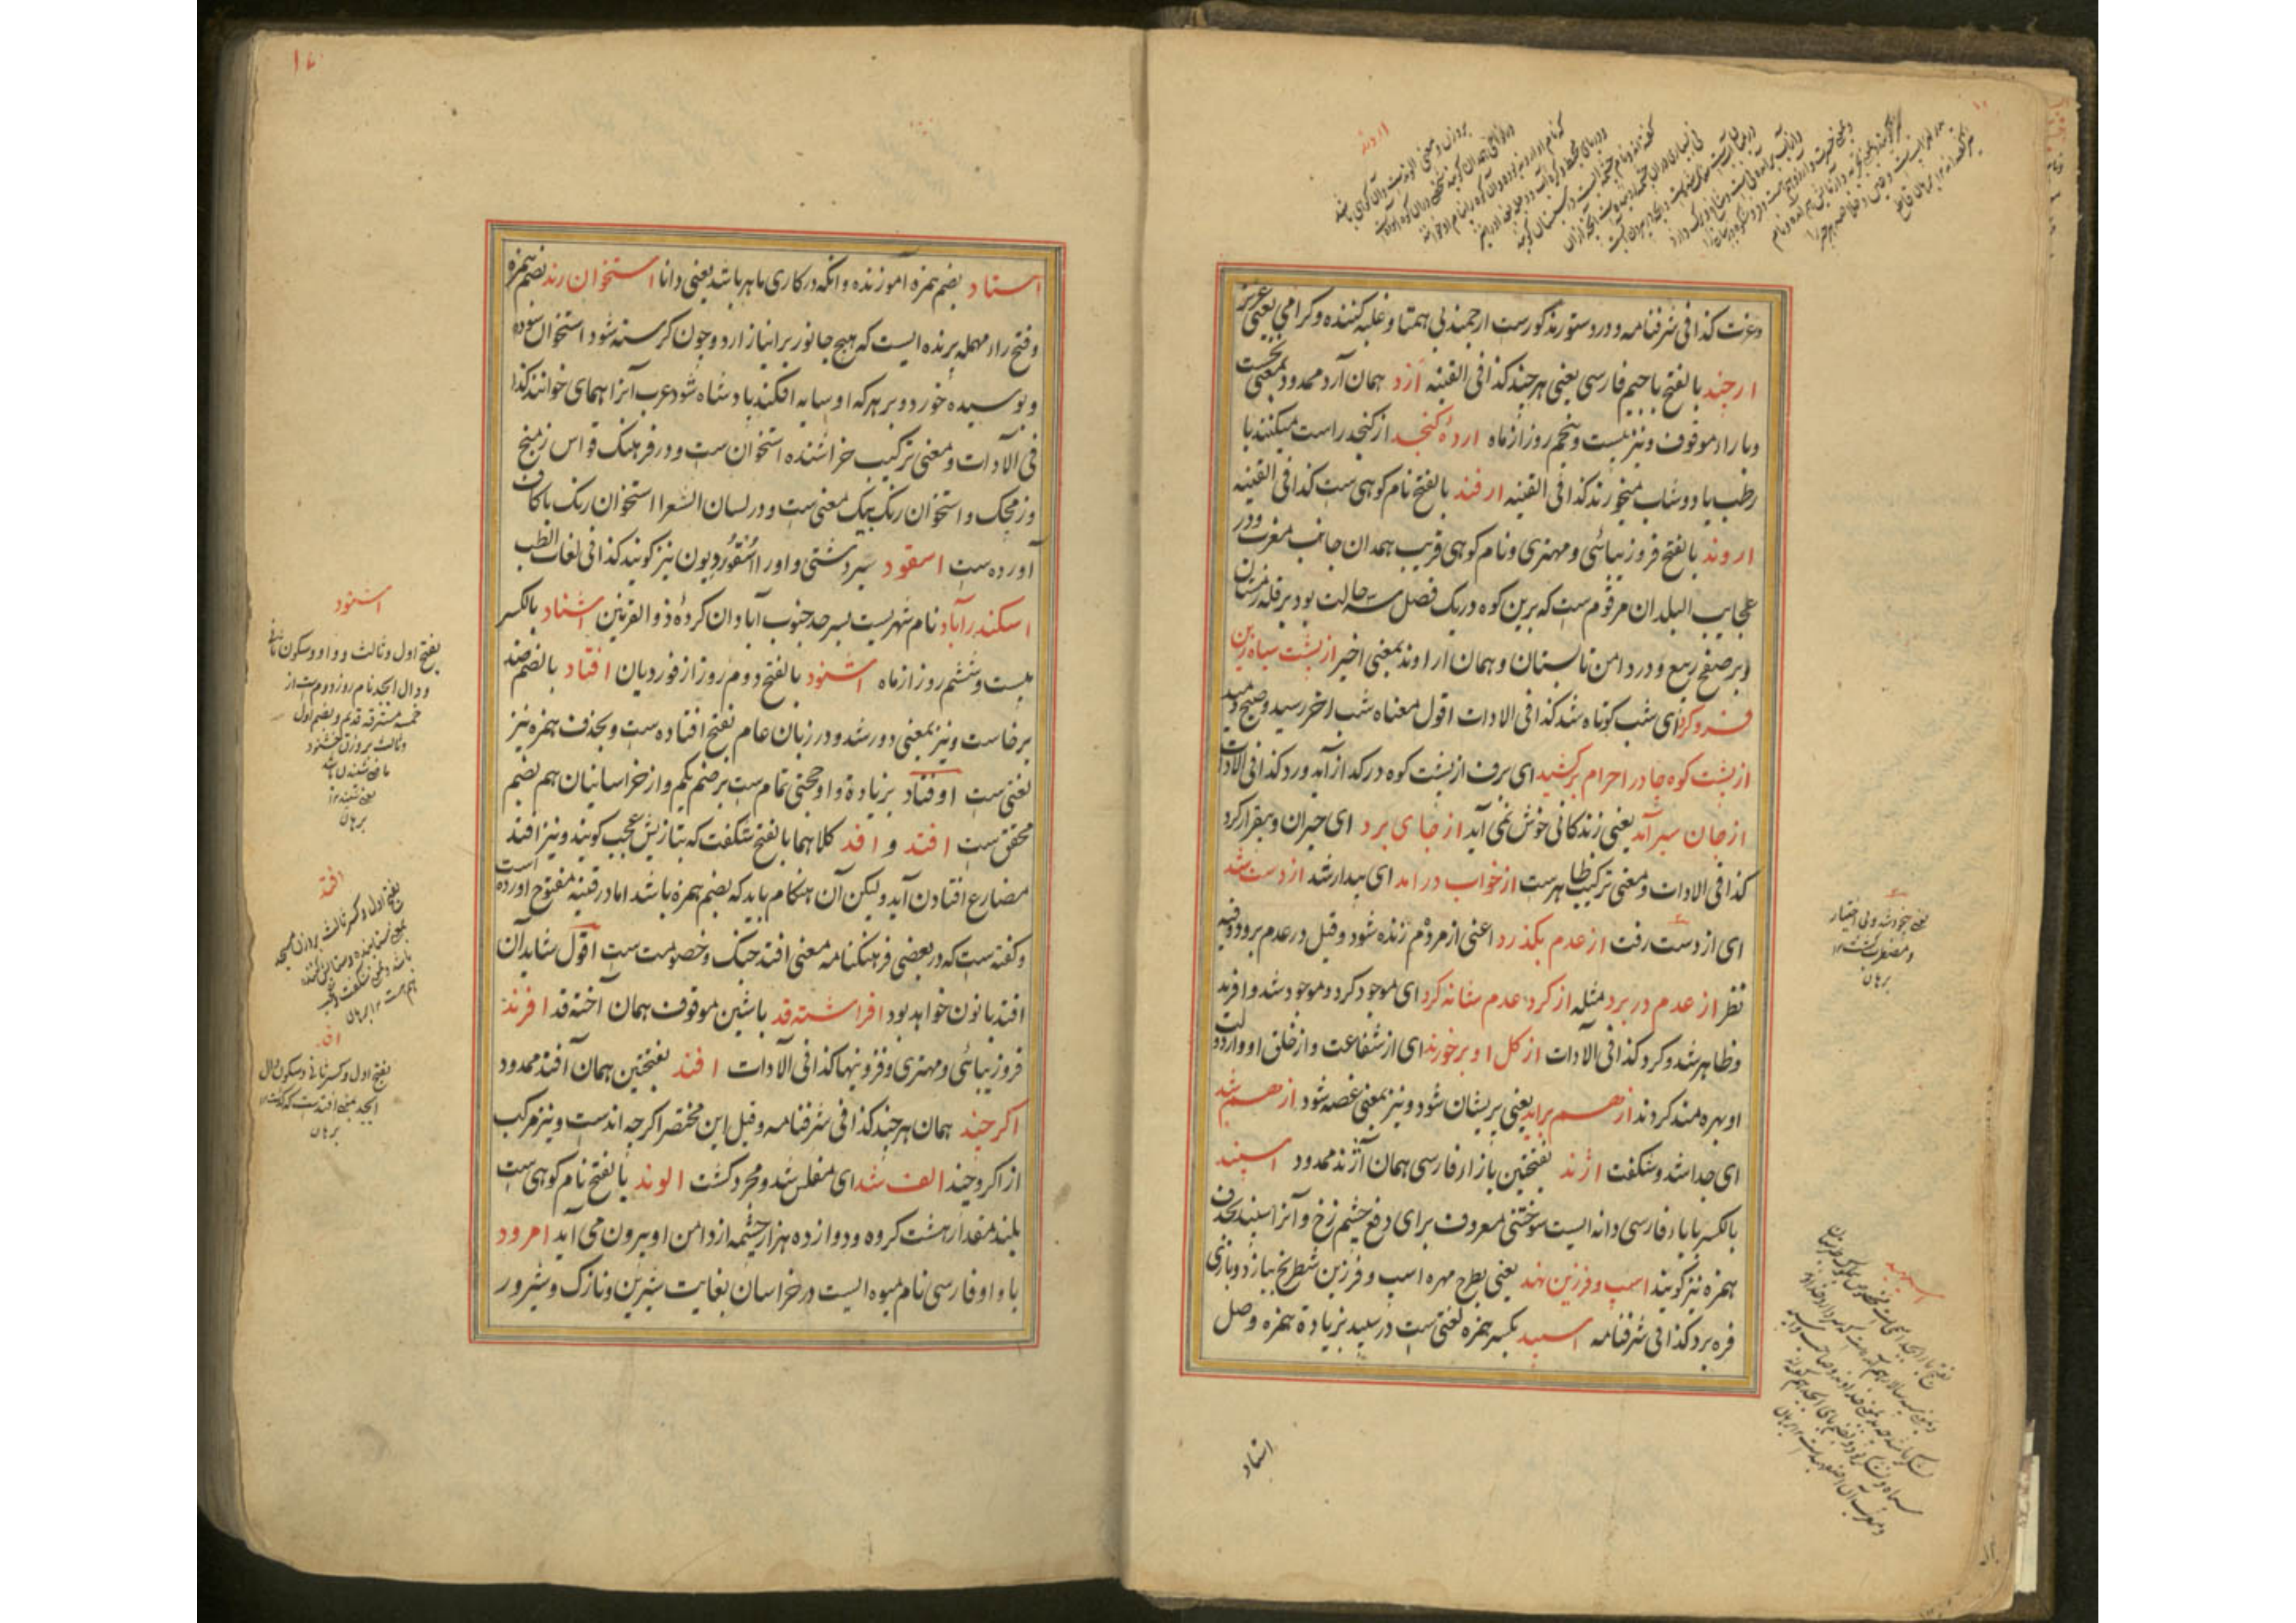 اروند
وعزت کذا فی شرفنامه و در دستور مذکورست ارجمند بی همتا و غلبه کننده و کرامی یعنی عزیز
ارچند بالفتح با جیم فارسی یعنی هرچند کذا فی القنیه ازد همان آرد ممدود بمعنی نخست
و با راء موقوف و نیز بیست و پنجم روز از ماه اردهٔ کنجد از کنجد راست میکنند با
رطب یا دوشاب میخورند کذا فی القنیه ارفند بالفتح نام کوهی ست کذا فی القنیه
اروند بالفتح فرو زیبائی و مهتری و نام کوهی قریب همدان جانب مغرب و در
عجایب البلدان مرقوم ست که برین کوه در یک فصل سه حالت بود بر قله زمستان
و بر صفح ربیع و در دامن تابستان و همان اراوند بمعنی اخیر از پشت سیاه زین
فرو کرد ای شب کوتاه شد کذا فی الادات اقول معناه شب اخر رسید و صبح دمید
از پشت کوه چادر احرام برکشید ای برف از پشت کوه در کداز آمد ورد کذا فی الادات
از جان سیر آمد یعنی زندکانی خوش نمی آید از جای برد ای حیران و بیقرار کرد
کذا فی الادات و معنی ترکیب ظاهرست از خواب درامد ای بیدار شد از دست شد
ای از دست رفت از عدم بکذرد اعنی از مردم زنده شود و قیل در عدم برود وفیه
نظر از عدم در برد مثله از کرد عدم شانه کرد ای موجود کرد و موجود شد و افرید
و ظاهر شد و کرد کذا فی الآدات از کل او برخورند ای از شفاعت و از خلق او و از دولت
او بهره مند کردند از هم براید یعنی پریشان شود و نیز بمعنی غصه شود از هم شد
ای جدا شد و شکفت اژند بفتحتین با زاء فارسی همان آژند ممدود اسپند
بالکسر با باء فارسی دانه ایست سوختنی معروف برای دفع چشم زخ و آنرا سپند بحذف
همزه نیز کویند اسپ و فرزین نهد یعنی بطرح مهره اسپ و فرزین شطرنج ببازد و بازی
فره برد کذا فی شرفنامه اسپید بکسر همزه لغتی ست در سپید بزیادة همزه وصل
استاد
یعنی بیخود شد و بی اختیار
و مضطرب کشت ۱۲
برهان
استاد بضم همزه آموزنده و انکه در کاری ماهر باشد یعنی دانا استخوان رند بضم همزه
و فتح راء مهمله پرنده ایست که هیچ جانور بر انیازارد و چون کرسنه شود استخوان سوده
و بوسیده خورد و بر هر که او سایه افکند بادشاه شود عرب آنرا همای خوانند کذا
فی الآدات و معنی ترکیب خراشنده استخوان ست و در فرهنک قواس زمنج
و زمجک و استخوان رنک بیک معنی ست و در لسان الشعرا استخوان رنک با کاف
آورده ست اسقود سیر دشتی و اورا اسقوردیون نیز کویند کذا فی لغات الطب
اسکندرآباد نام شهریست بسرحد جنوب آبادان کردهٔ ذو القرنین اشتاد بالکسر
بیست و ششم روز از ماه اشنود بالفتح دوم روز از فوردیان افتاد بالضم ضد
برخاست و نیز بمعنی دور شد و در زبان عام بفتح افتاده ست و بحذف همزه نیز
لغتی ست اوفتاد بزیادة واو حجتی تمام ست بر ضم یکم و از خراسانیان هم بضم
محقق ست افتد و افد کلاهما بالفتح شکفت که بتازیش عجب کویند و نیز افتد
مضارع افتادن آید ولیکن آن هنکام باید که بضم همزه باشد اما در قنیه مفتوح اورده است
و کفته ست که در بعضی فرهنکنامه معنی افتد جنک و خصومت ست اقول شاید آن
افتد با نون خواهد بود افراشته قد باشین موقوف همان آخته قد افرند
فرو زیبائی و مهتری و فزونیها کذا فی الآدات افند بفتحتین همان آفند ممدود
اکرچند همان هرچند کذا فی شرفنامه و قیل این مختصر اکرچه اندست و نیز مرکب
از اکر و چند الف شد ای مفلس شد و مجرد کشت الوند بالفتح نام کوهی ست
بلند مقدار هشت کروه و دوازده هزار چشمه از دامن او بیرون می آید امرود
با واو فارسی نام میوه ایست در خراسان بغایت شیرین و نازک و شیرور
اشنود
بفتح اول و ثالث و واو و سکون ثانی
و دال ابجد نام روز دوم ست از
خمسه مسترقه قدیم و بضم اول
و ثالث بر وزن خشنود
ماضی شنیدن باشد
یعنی شنید ۱۲
برهان
افد
بفتح اول و کسر ثانی و سکون دال
ابجد بمعنی افتدست که کذشت ۱۲
برهان